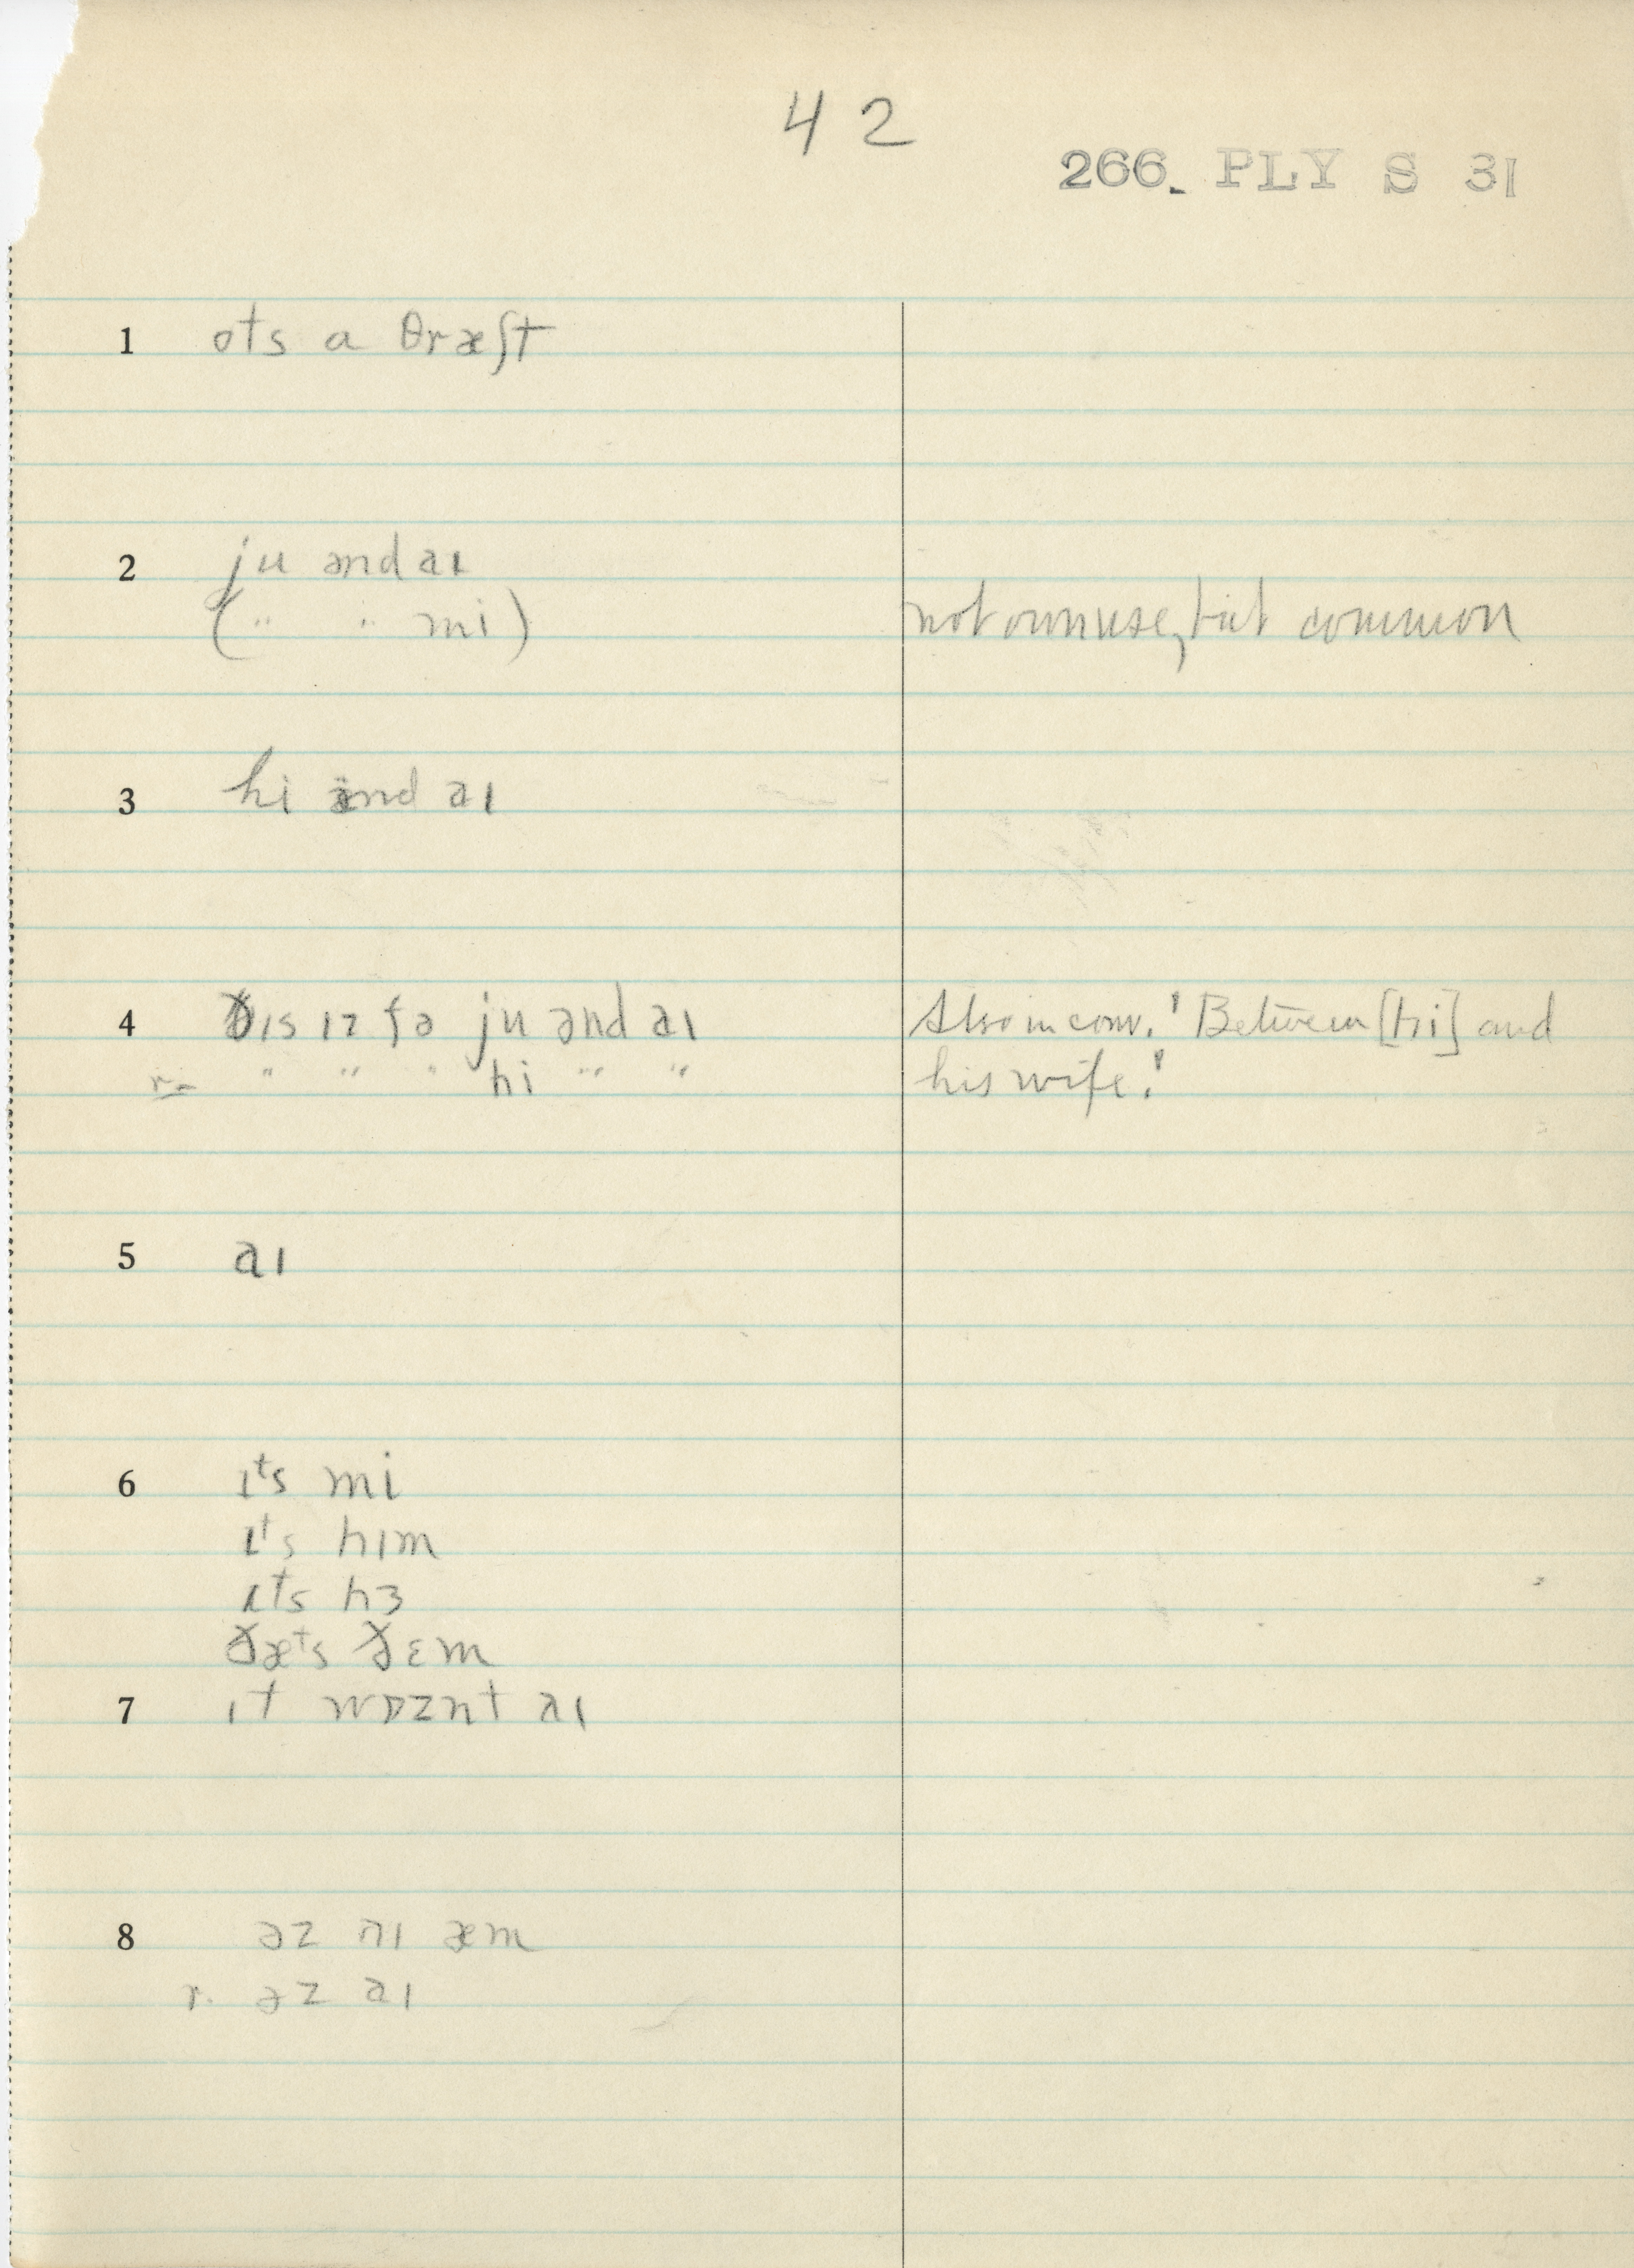 42
266. PLY S 31
1 ots a θræʃt
2 ju ənd aɪ
(" " mi) not own use, but common
3 hi ənd aɪ
4 ðɪs ɪz fə ju ənd aɪ Also in conv. ! Between [hi] and
r- " " " hi " " his wife.!
5 aɪ
6 ɪts mi
ɪts hɪm
ɪts hɜ
ðæts ðɛm
7 ɪt wɒznt aɪ
8 əz aɪ æm
r. əz aɪ